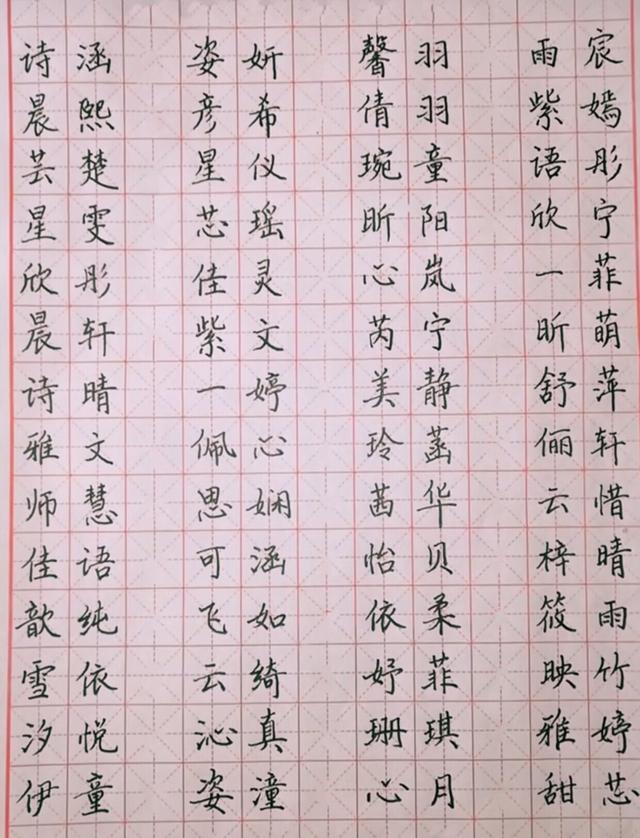 诗涵 姿妍 馨羽 雨宸
晨熙 彦希 倩羽 紫嫣
芸楚 星仪 琬童 语彤
星雯 芯瑶 昕阳 欣宁
欣彤 佳灵 心岚 一菲
晨轩 紫文 芮宁 昕萌
诗晴 一婷 美静 舒萍
雅文 佩心 玲菡 俪轩
师慧 思娴 茜华 云惜
佳语 可涵 怡贝 梓晴
歆纯 飞如 依柔 筱雨
雪依 云绮 妤菲 映竹
汐悦 沁真 珊琪 雅婷
伊童 姿潼 心月 甜芯